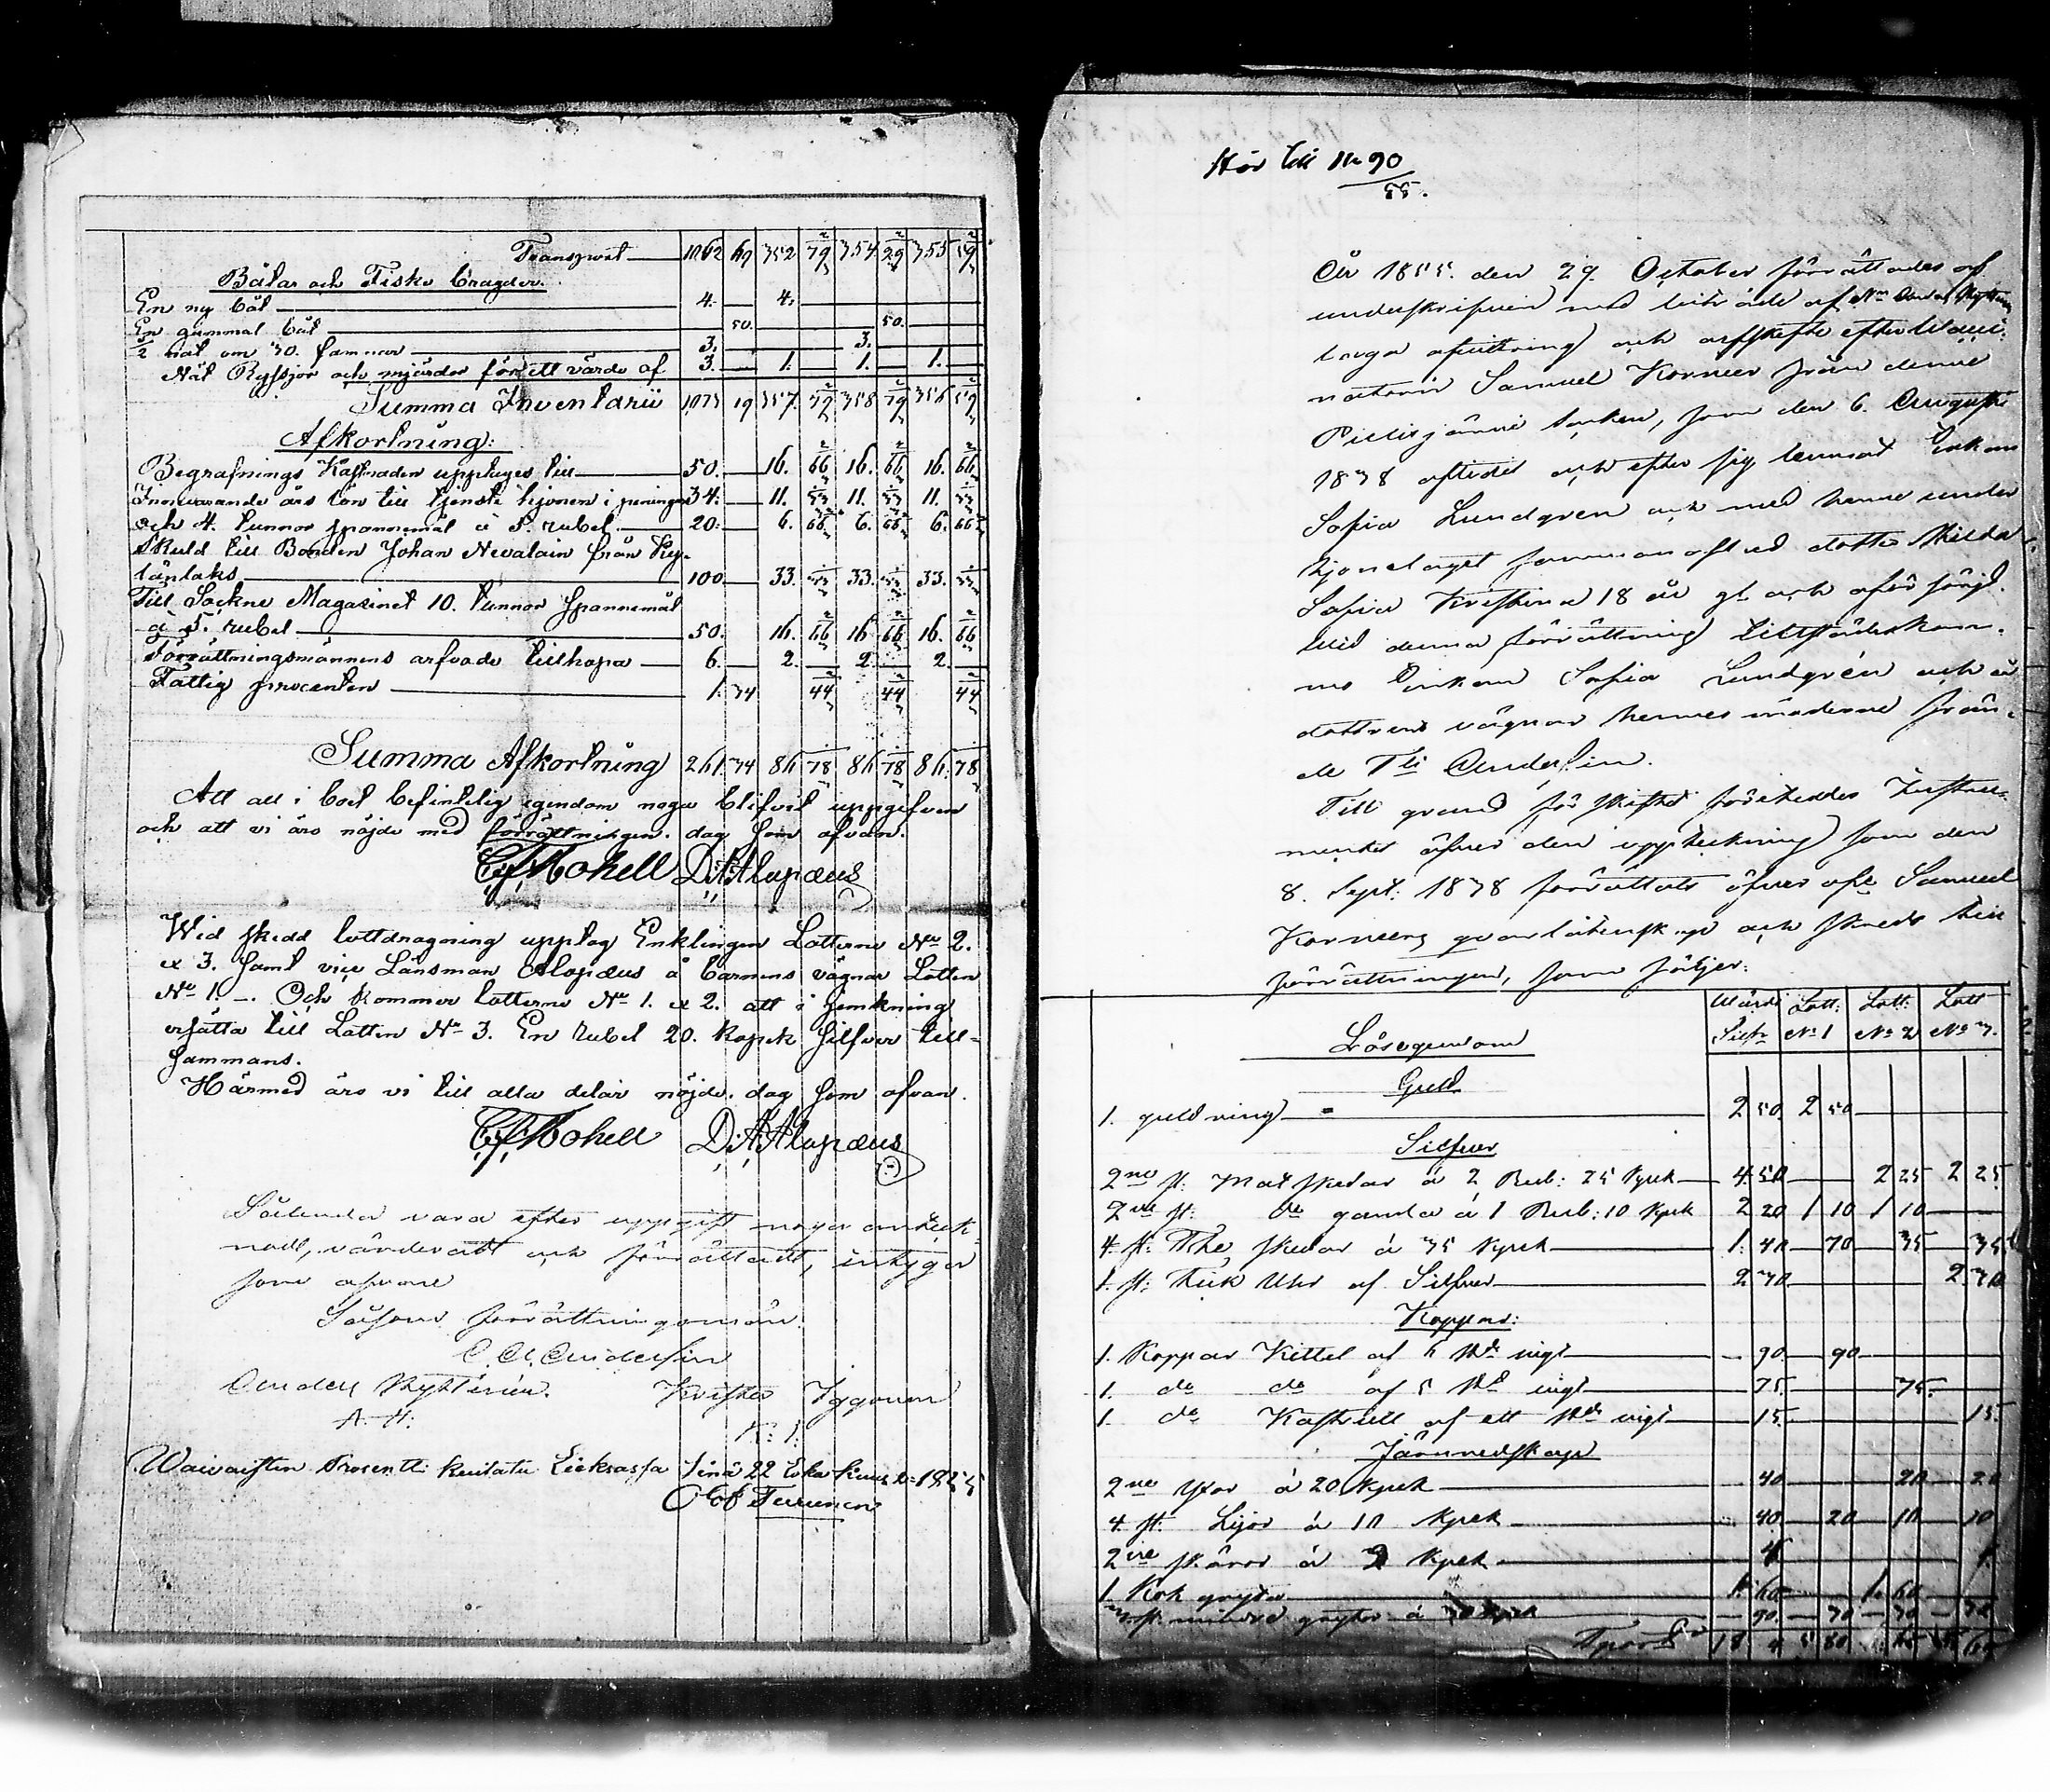 Transport 1062 69 352 79 2/3 354 29 2/3 355 59 2/3
Båtar och Fiske bragder.
En ny båt 4. 4.
En gammal båt 50. 50.
1/2 nät om 30. famnar 3. 3.
Nät Ryssjor och mjärdor för ett värde af 3. 1. 1. 1.
Summa Inventarii 1073 19 357. 79 2/3 358 79 2/3 356 59 2/3
Afkortning:
Begrafnings Kostnaden upptages till 50. 16. 66 2/3 16. 66 2/3 16. 66 2/3
Innevarande års lön till tjenste hjonen i peningar 34. 11. 33 1/3 11. 33 1/3 11. 33 1/3
och 4. tunnor spannemål à 5. rubel. 20. 6. 66 2/3 6. 66 2/3 6. 66 2/3
Skuld till Bonden Johan Nevalain från
länlaks 100 33. 33 1/3 33. 33 1/3 33. 33 1/3
Till Sockne Magasinet 10. tunnor spannemål
à 5. rubel 50. 16. 66 2/3 16 66 2/3 16. 66 2/3
Förrättningsmännens arfvode tillhopa 6. 2. 2. 2.
Fattig procenten 1. 34 44 2/3 44 2/3 44 2/3
Summa Afkortning 261. 34 86 78 86 78 86. 78
Att all i boet befintelig egendom noga blifvit uppgifven
och att vi äro nöjde med förrättningen. dag som ofvan.
Mohell D: A: Alopæus
Wid skedd lottdragning upptog Enklingen Lotterne No 2.
& 3. samt vice Länsman Alopæus å barnens vägnar Lotten
No 1. —. Och kommer lotterne No 1. & 2. att i jemkning
ersätta till Lotten No 3. En rubel 20. kopek silfver till-
sammans.
Härmed äro vi till alla delar nöjde. dag som ofvan.
Mohell D: A: Alopæus
Sålunda vara efter uppgift noga anteck-
nadt, värderadt och förrättadt, intyga
som ofvan
Såsom förrättningsmän:
C. A. Anderlin
Anders Kyttinen. Krister Iggonen
A. K. K: I:
Waivaisten Prosentti kuitatu Lieksassa sinä 22 1855
Olof Turunen
Hör till No 90
/55.
År 1855. den 29. October förrättades af
underskrifven med biträde af Nm Anders Kyttinen
laga afvittring och arfskifte efter
Samuel Korneer från denne
Pielisjärvi socken, som den 6. Augusti
1838 aflidit och efter sig lemnat Enkan
Sofia Lundgren och med henne under
hjonelaget sammanaflad dotter Hilda
Sofia Kristina 18 år gl. och oförsörjd.
Wid denna förrättning tillstädeskom-
mo Enkan Sofia Lundgrén och å
dottrens vägnar hennes
Anderlin.
Till grund för skiftet företeddes Instru-
mentet öfver den uppteckning som den
8. Sept. 1838 förrättats öfver afl. Samuel
Korneers qvarlåtenskap och skreds till
förrättningen, som följer:
Lösegendom Värde Silfr Lott: No 1 Lott: No 2 Lott No 3.
Guld
1. guldring 2 50. 2 50
Silfver
2ne st: Matskedar à 2 Rub: 25 Kpek 4 50 2 25 2 25
2ne st: do gamla à 1 Rub: 10 Kpek 2 20 1 10 1 10
4. st: The skedar à 35 Kpek 1. 40 70 35 35
1. st: Fick Uhr af Silfver 2 30. 2. 30
Koppar:
1. Koppar Kittel af 6 vigt 90. 90
1. do do af 5 vigt 75. 75.
1. do Kastrull af ett vigt 15. 15.
Järnredskap
2ne Yxor à 20 Kpek 40 20 20
4. st: Lijor à 10 Kpek 40. 20 10 10
2ne skäror à Kpek 4
1. Kok gryta 1. 60 1. 60
3. st: mindre grytor à 30 Kpek 90. 30 30 30